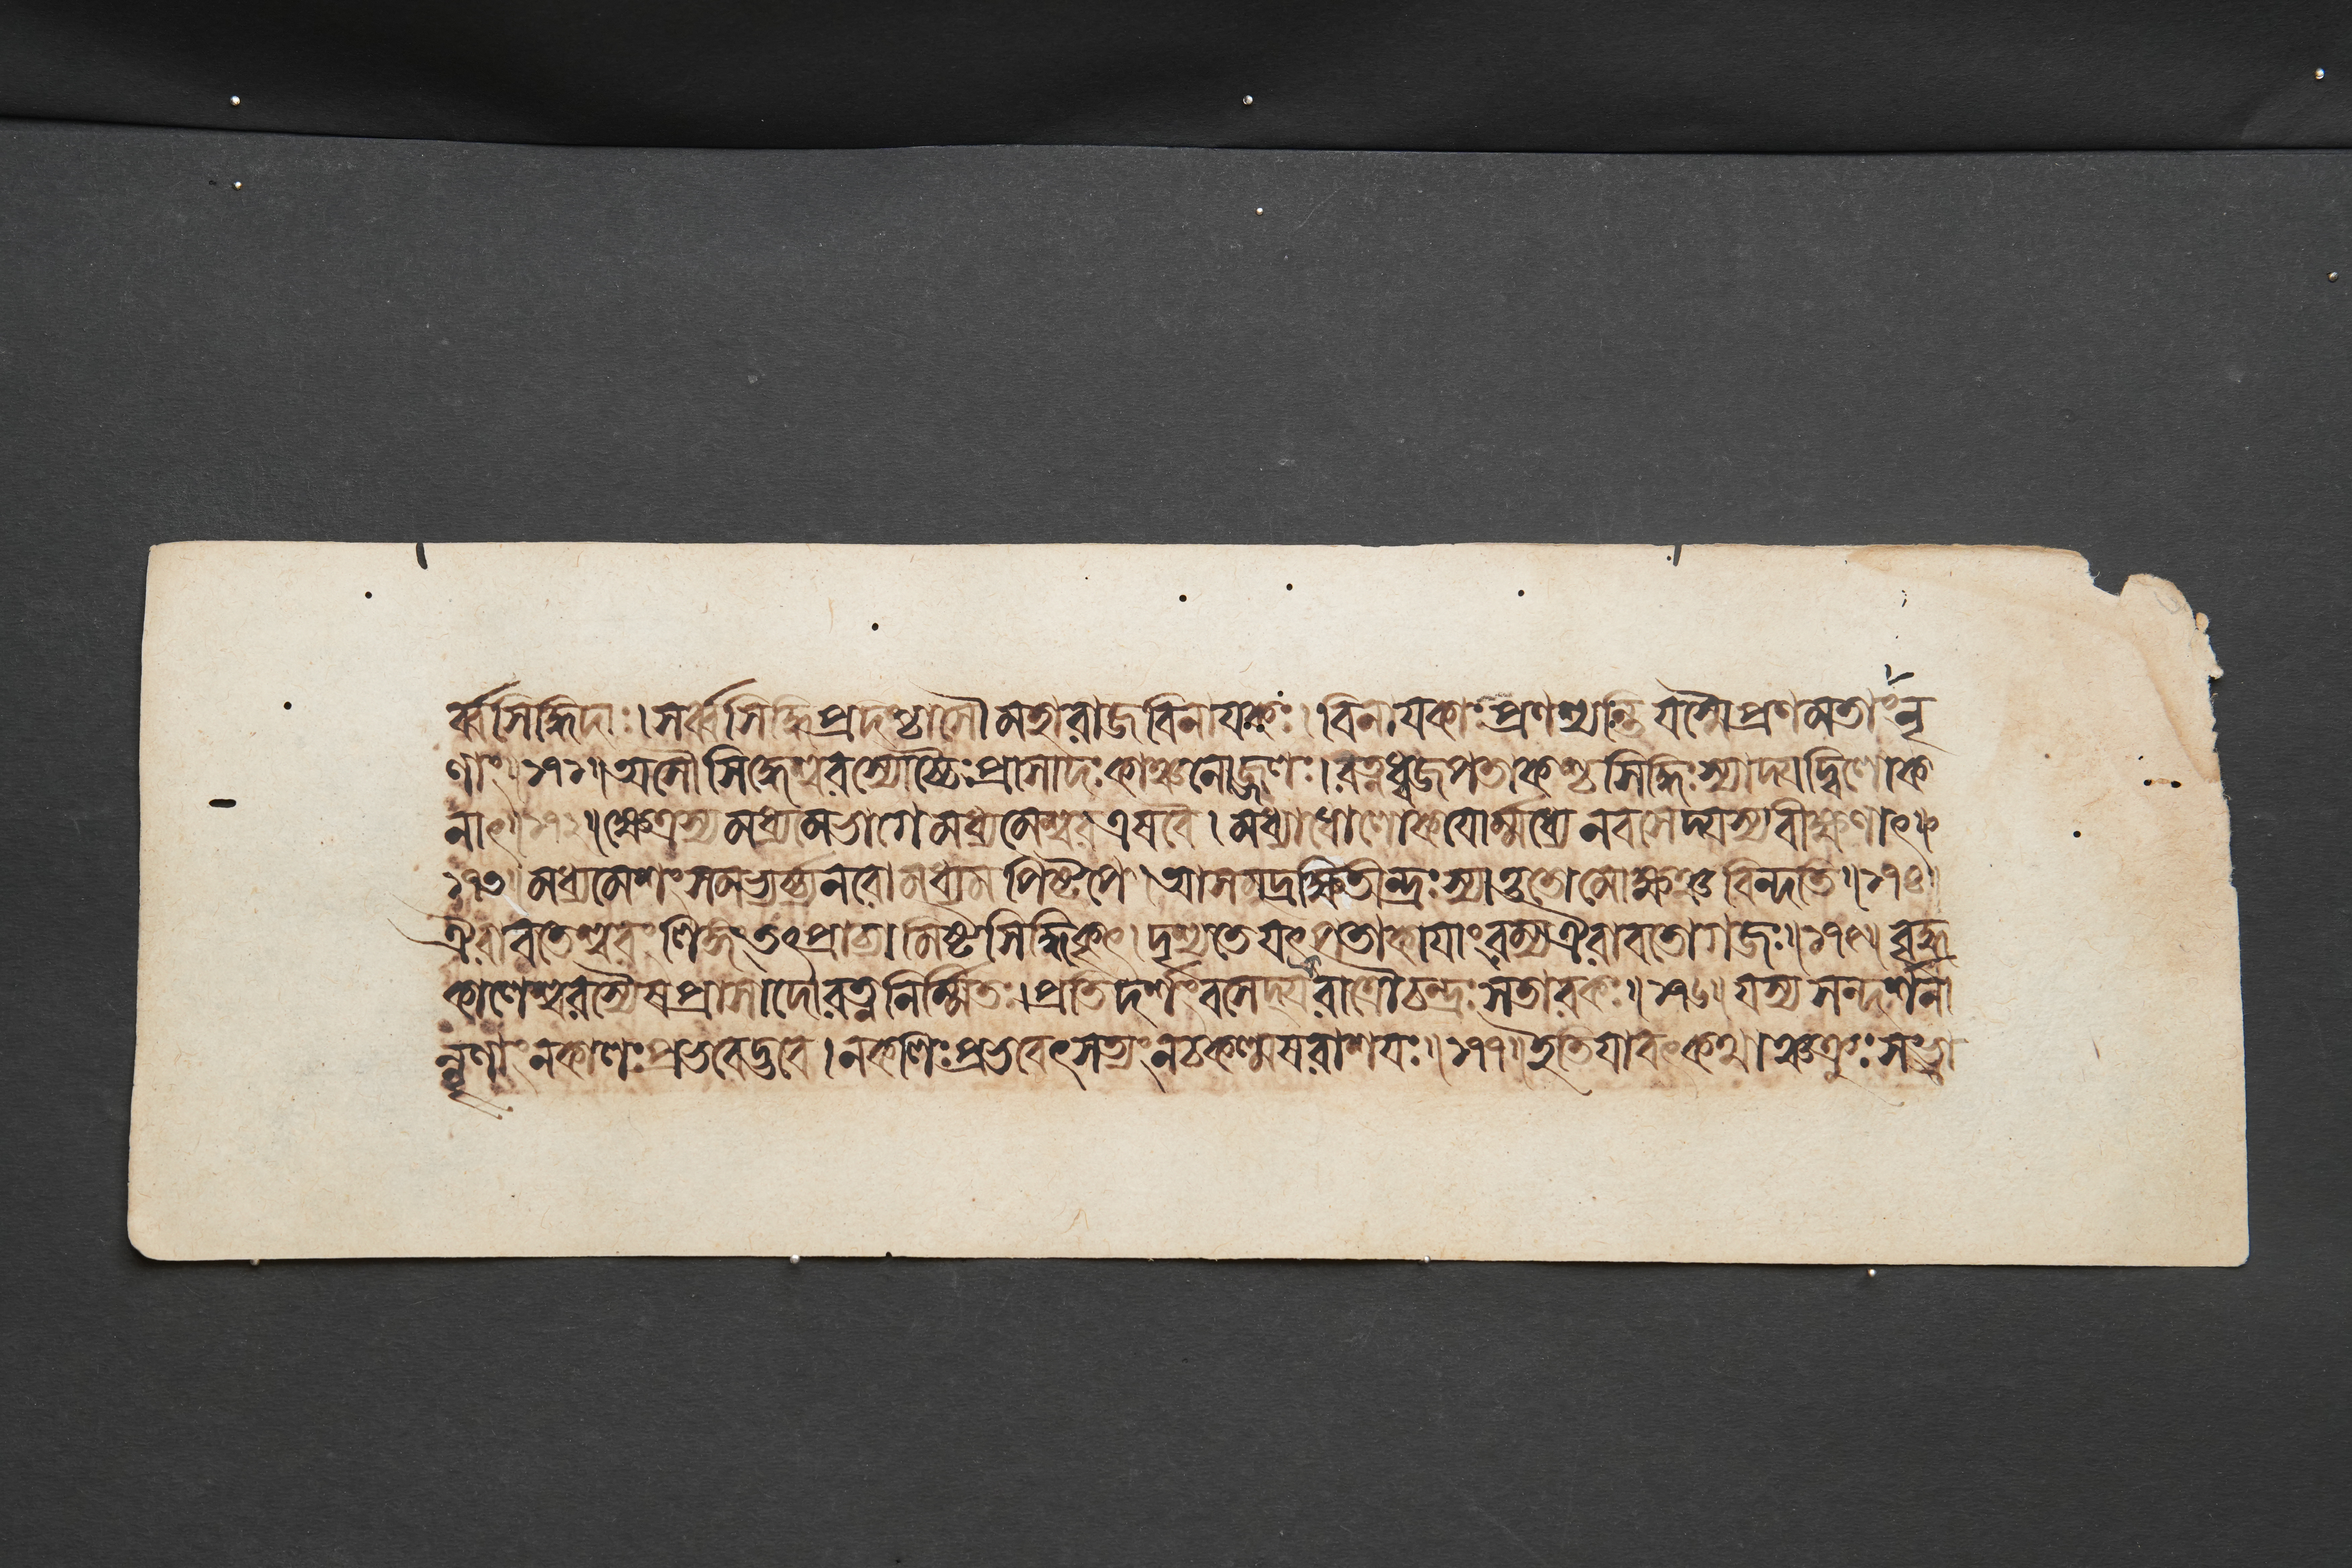 র্ব্বসিদ্ধিদাঃ। সর্ব্বসিদ্ধিপ্রদশ্চাসৌ মহারাজবিনায়কঃ। বিনায়কাঃ প্রণশ্যন্তি যস্মৈ প্রণমতাং নৃ
ণাং॥১৭১॥ অসৌ সিদ্ধেশ্বরস্যোচ্চৈঃ প্রাসাদঃ কাঞ্চনোজ্জ্বলঃ। রত্নধ্বজপতাকশ্চ সিদ্ধিঃ স্যাদ্যদ্বিলোক
নাৎ॥১৭২॥ ক্ষেত্রস্য মধ্যমভাগে মধ্যমেশ্বর এষ বৈ। মধ্যাধোলোকয়োর্ম্মধ্যে ন বসেদ্যস্য বীক্ষণাৎ॥
১৭৩॥ মধ্যমেশং সমভ্যর্চ্য নরো মধ্যমপিষ্টপে। আসমুদ্রক্ষিতীন্দ্রঃ স্যাত্ততো মোক্ষঞ্চ বিন্দতি॥১৭৪॥
ঐরাবতেশ্বরং লিঙ্গং তৎপ্রাচ্যামিষ্টসিদ্ধিকৃৎ। দৃশ্যতে যৎপতাকায়াং রম্য ঐরাবতো গজঃ॥১৭৫॥ বৃদ্ধ
কালেশ্বরস্যৈষ প্রাসাদো রত্ননির্ম্মিতঃ। প্রতিদর্শং বসেদ্যত্র রাত্রৌ চন্দ্রঃ সতারকঃ॥১৭৬॥ যস্য সন্দর্শনা
ন্নৃণাং ন কালঃ প্রভবেদ্ভুবে। ন কলিঃ প্রভবেৎসত্যং ন চ কল্মষরাশয়ঃ॥১৭৭॥ ইতি যাবৎকথাঞ্চক্রুঃ সংভ্রা